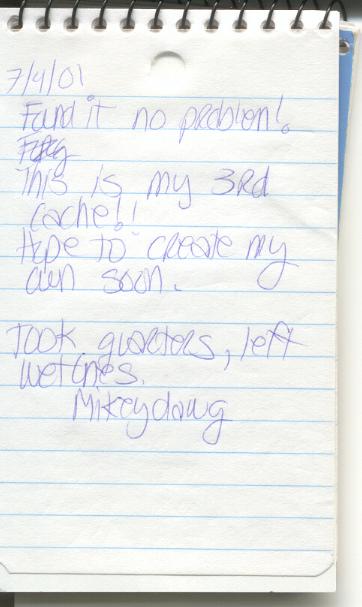 7/4/01.
Fand it no problem!
This is my 3rd
cache!!
Hope to create my
own soon.
Took quarters, left
wetties.
Mikeydawg